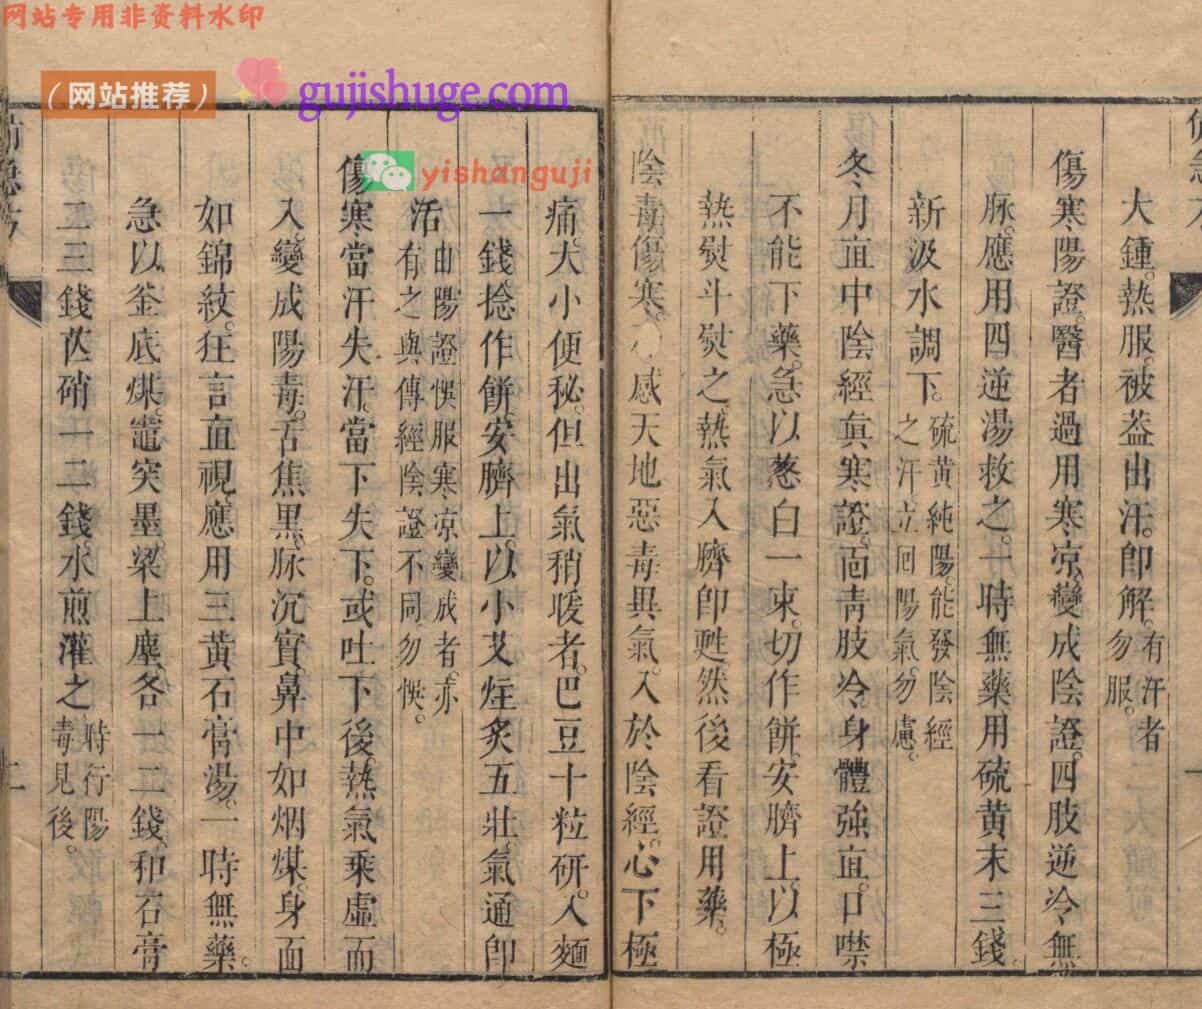 网站专用非资料水印
（网站推荐）
gujishuge.com
yishanguji
大鍾熱服。被蓋出汗。即解。有汗者勿服。
傷寒陽證。醫者過用寒凉。變成陰證。四肢逆冷。無
脉。應用四逆湯救之。一時無藥。用硫黄末三錢。
新汲水調下。硫黄純陽。能發陰經之汗。立囘陽氣。勿慮。
冬月直中陰經眞寒證。面青肢冷。身體強直。口噤
不能下藥。急以葱白一束。切作餅。安臍上。以極
熱熨斗熨之。熱氣入臍卽甦。然後看證用藥。
陰毒傷寒。感天地惡毒異氣。入於陰經。心下極
痛。大小便秘。但出氣稍暖者。巴豆十粒研。入麵
一錢。捻作餅。安臍上。以小艾炷炙五壯。氣通卽
活。由陽證悞服寒凉變成者。亦有之。與傳經陰證不同。勿悞。
傷寒當汗失汗。當下失下。或吐下後。熱氣乘虛而
入。變成陽毒。舌焦黑。脉沉實。鼻中如烟煤。身面
如錦紋。狂言直視。應用三黄石膏湯。一時無藥。
急以釜底煤。竈突墨。梁上塵。各一二錢。和石膏
二三錢。芒硝一二錢。水煎灌之。時行陽毒見後。
二